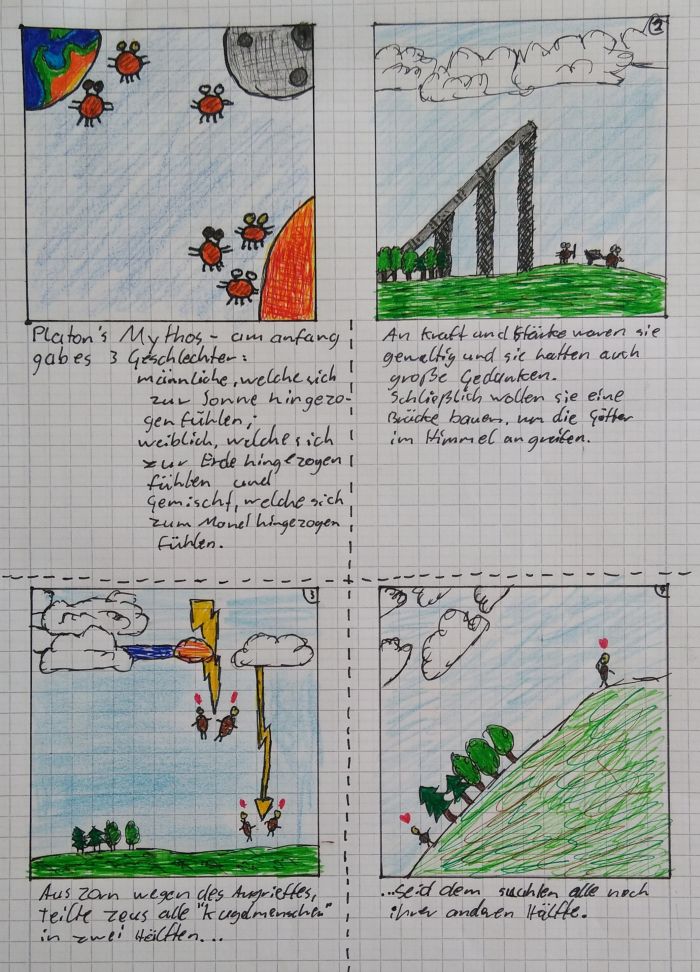 Platon's Mythos - am anfang
gab es 3 Geschlechter:
männliche, welche sich
zur Sonne hingezo-
gen fühlen;
weiblich, welche sich
zur Erde hingezogen
fühlen und
Gemischt, welche sich
zum Mond hingezogen
fühlen.
2
An Kraft und Stärke waren sie
gewaltig und sie hatten auch
große Gedanken.
Schließlich wollen sie eine
Brücke bauen, um die Götter
im Himmel angreifen.
3
Aus Zorn wegen des Angriffes,
teilte Zeus alle "Kugelmenschen"
in zwei Hälften...
4
...seid dem suchten alle noch
ihrer anderen Hälfte.